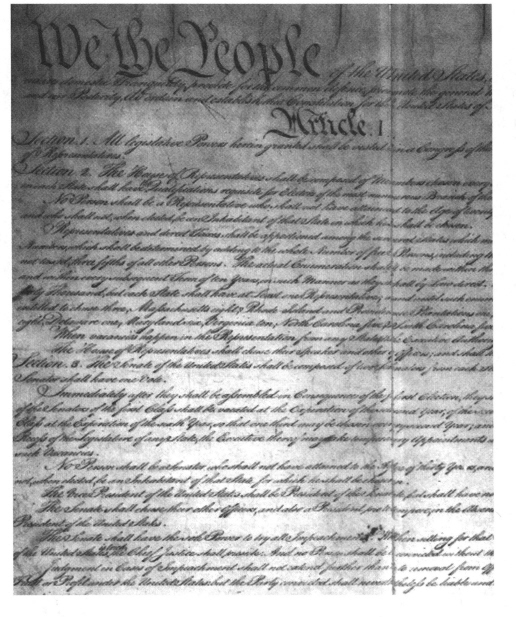 We the People of the United States,
insure domestic Tranquility, provide for the common defence, promote the general
and our Posterity, do ordain and establish this Constitution for the United States of
Article. I
Section. 1. All legislative Powers herein granted shall be vested in a Congress of the
of Representatives.
Section. 2. The House of Representatives shall be composed of Members chosen every
in each State shall have Qualifications requisite for Electors of the most numerous Branch of the
No Person shall be a Representative who shall not have attained to the Age of twenty
and who shall not, when elected, be an Inhabitant of that State in which he shall be chosen.
Representatives and direct Taxes shall be apportioned among the several States which may
Numbers, which shall be determined by adding to the whole Number of free Persons, including
not taxed, three fifths of all other Persons. The actual Enumeration shall be made within three
and within every subsequent Term of ten Years, in such Manner as they shall by Law direct.
thirty Thousand, but each State shall have at Least one Representative; and until such enum
entitled to chuse three, Massachusetts eight, Rhode Island and Providence Plantations one,
eight, Delaware one, Maryland six, Virginia ten, North Carolina five, South Carolina five
When vacancies happen in the Representation from any State, the Executive Authority
The House of Representatives shall chuse their Speaker and other Officers; and shall
Section. 3. The Senate of the United States shall be composed of two Senators from each
Senator shall have one Vote.
Immediately after they shall be assembled in Consequence of the first Election, they
of the Senators of the first Class shall be vacated at the Expiration of the second Year, of the
Class at the Expiration of the sixth Year, so that one third may be chosen every second Year; and
Recess of the Legislature of any State, the Executive thereof may make temporary Appointments
such Vacancies.
No Person shall be a Senator who shall not have attained to the Age of thirty Years, and
not, when elected, be an Inhabitant of that State for which he shall be chosen.
The Vice President of the United States shall be President of the Senate, but shall have no
The Senate shall chuse their other Officers, and also a President pro tempore, in the Absen
President of the United States.
The Senate shall have the sole Power to try all Impeachments. When sitting for that
of the United States the Chief Justice shall preside: And no Person shall be convicted without
Judgment in Cases of Impeachment shall not extend further than to removal from Off
Trust or Profit under the United States: but the Party convicted shall nevertheless be liable and